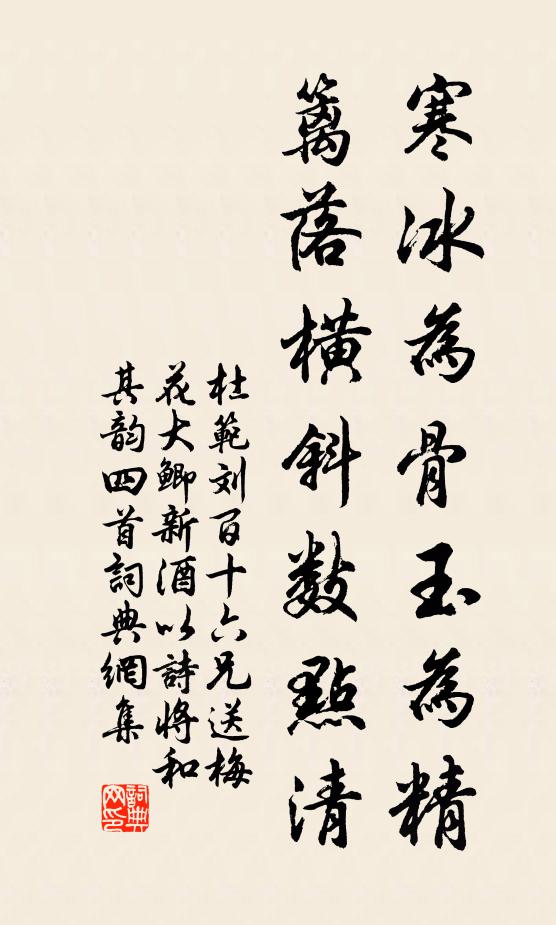 寒冰為骨玉為精
籬落橫斜數點清
杜範刘百十六兄送梅
花大鯽新酒以詩將和
其韵四首詞典網集
詞典
网印